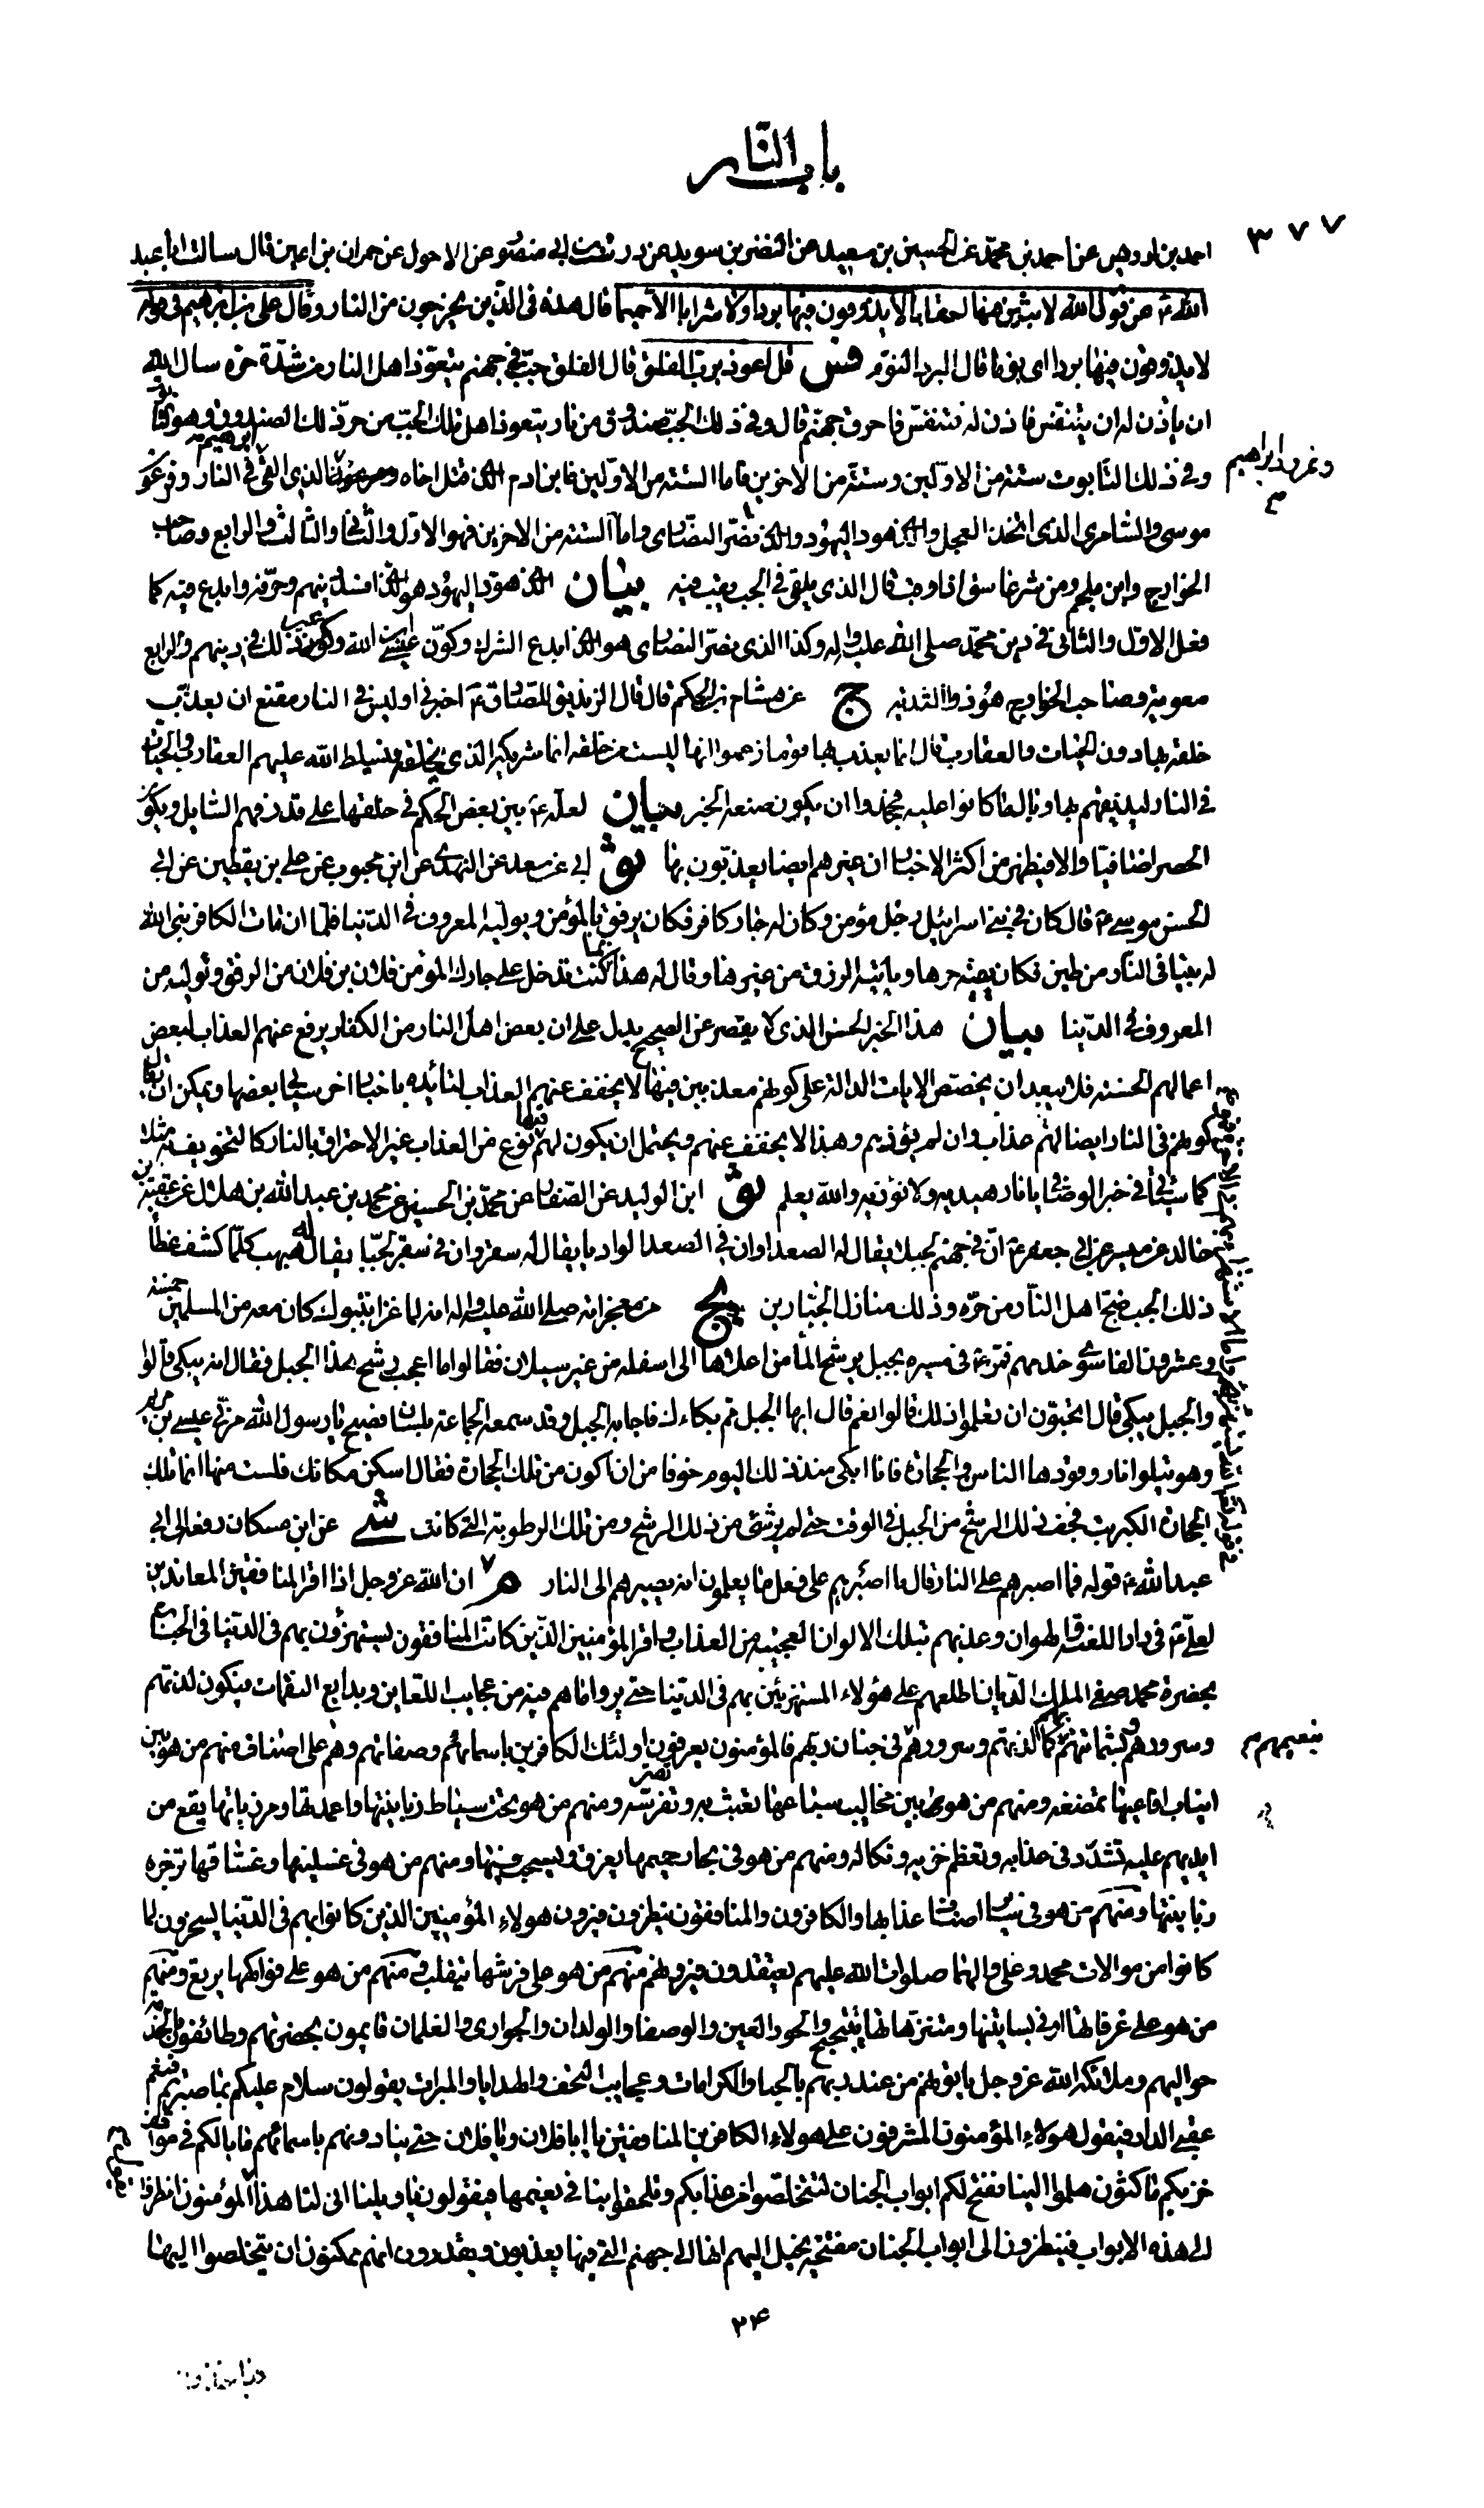 باب النار
٣٧٧
احمد بن ادريس عن احمد بن محمد عن الحسين بن سعيد عن النضر بن سويد عن درست بن ابي منصور عن الاحول عن حمران بن اعين قال سالت ابا عبد
الله ع عن قول الله لابثين فيها احقابا لا يذوقون فيها بردا ولا شرابا الا حميما قال هذه في الذين يخرجون من النار وقال علي بن ابراهيم في قوله
لا يذوقون فيها بردا اى نوما قال البرد النوم فس قل اعوذ برب الفلق قال الفلق جب في جهنم يتعوذ اهل النار من شدة حره سال الله
ان ياذن له ان يتنفس فاذن له فتنفس فاحرق جهنم قال وفي ذلك الجب صندوق من نار يتعوذ اهل تلك الجب من حر ذلك الصندوق وهو التابوت
وفي ذلك التابوت ستة من الاولين وستة من الاخرين فاما الستة من الاولين فابن ادم الذى قتل اخاه ونمرود ابراهيم الذى القى ابراهيم في النار وفرعون
ونمرود ابراهيم
موسى والسامرى الذى اتخذ العجل والذى هود اليهود والذى نصر النصارى واما الستة من الاخرين فهو الاول والثانى والثالث والرابع وصاحب
الخوارج وابن ملجم ومن شر غاسق اذا وقب قال الذى يلقى في الجب يغيب فيه بيان الذى هود اليهود هو الذى افسد دينهم وحرفه وابدع فيه كما
فعل الاول والثانى في دين محمد صلى الله عليه واله وكذا الذى نصر النصارى هو الذى ابدع الشرك وكون عيسى ابن الله وغير ذلك في دينهم والرابع
معوية وصاحب الخوارج هو ذو الثدية ج عن هشام بن الحكم قال قال الزنديق للصادق ع اخبرنى اوليس في النار مقنع ان يعذب
خلقه بها دون الحيات والعقارب قال انما يعذب بها قوما زعموا انها ليست من خلقه انما شريكه الذى يخلقه فيسلط الله عليهم العقارب والحيات
في النار ليذيقهم بها وبال ما كانوا عليه فجحدوا ان يكون صنعه الخبر بيان لعله ع بين بعض الحكم في خلقها على قدر فهم السايل ويكون
الحصر اضافيا والا فيظهر من اكثر الاخبار ان غيرهم ايضا يعذبون بها ثو ابي عن سعد عن النهدى عن ابن محبوب عن علي بن يقطين عن ابي
الحسن موسى ع قال كان في بنى اسرائيل رجل مؤمن وكان له جار كافر فكان يرفق بالمؤمن ويوليه المعروف في الدنيا فلما ان مات الكافر بنى الله
له بيتا في النار من طين فكان يقيه حرها وياتيه الرزق من غيرها وقال له هذا بما كنت تدخل على جارك المؤمن فلان بن فلان من الرفق وتوليه من
المعروف في الدنيا بيان هذا الخبر الحسن الذى لا يقصر عن الصحيح يدل على ان بعض اهل النار من الكفار يرفع عنهم العذاب لبعض
اعمالهم الحسنة فلا يبعد ان يخصص الايات الدالة على كونهم معذبين فيها لا يخفف عنهم العذاب لتائيده باخبار اخر سياتى بعضها ويمكن ان يقال
كونهم في النار ايضا لهم عذاب وان لم يؤذهم وهذا لا يخفف عنهم ويحتمل ان يكون لهم فيها نوع من العذاب غير الاحتراق بالنار كالتخويف به مثلا
كما سياتى في خبر الوصافى يا نار هيديه ولا تؤذيه والله يعلم ثو ابن الوليد عن الصفار عن محمد بن الحسين عن محمد بن عبد الله بن هلال عن عقبة بن
خالد عن ميسر عن ابي جعفر ع ان في جهنم لجبلا يقال له الصعدا وان في الصعدا لواديا يقال له سقر وان في سقر لجبا يقال له هبهب كلما كشف غطا
ذلك الجب ضج اهل النار من حره وذلك منازل الجبارين يج من معجزاته صلى الله عليه واله انه لما غزا بتبوك كان معه من المسلمين خمسة
وعشرون الفا سوى خدمهم فمر ع في مسيره بجبل يرشح الماء من اعلاه الى اسفله من غير سيلان فقالوا ما اعجب رشح هذا الجبل فقال انه يبكى قالوا
والجبل يبكى قال اتحبون ان تعلموا ذلك قالوا نعم قال ايها الجبل مم بكاءك فاجابه الجبل وقد سمعه الجماعة بلسان فصيح يا رسول الله مر بى عيسى بن مريم
وهو يتلو نارا وقودها الناس والحجارة فانا ابكى منذ ذلك اليوم خوفا من ان اكون من تلك الحجارة فقال اسكن مكانك فلست منها انما تلك
الحجارة الكبريت فجف ذلك الرشح من الجبل في الوقت حتى لم ير شئ من ذلك الرشح ومن تلك الرطوبة التى كانت شى عن ابن مسكان رفعه الى ابي
عبد الله ع قوله فما اصبرهم على النار قال ما اصبرهم على فعل ما يعلمون انه يصيرهم الى النار م ان الله عز وجل اذا اقر المنافقين المعاندين
لعلى ع في دار اللعنة والهوان وعذبهم بتلك الالوان العجيبة من العذاب واقر المؤمنين الذين كانت المنافقون يستهزؤن بهم في الدنيا في الجنان
بحضرة محمد صفى الملك الديان اطلعهم على هؤلاء المستهزئين بهم في الدنيا حتى يروا ما هم فيه من عجايب اللعاين وبدايع النقمات فيكون لذتهم
وسرورهم بشماتتهم بهم كما لذتهم وسرورهم في جنان ربهم فالمؤمنون يعرفون اولئك الكافرين باسمائهم وصفاتهم وهم على اصناف منهم من هو بين
بنعيمهم
انياب افاعيها تمضغه ومنهم من هو بين مخاليب سباعها تعبث به وتفرسه ومنهم من هو تحت سياط زبانيتها واعمدتها ومرزباتها يقع من
ايديهم عليه تشدد في عذابه وتعظم خزيه ونكاله ومنهم من هو في بحار حميمها يغرق ويسحب فيها ومنهم من هو في غسلينها وغساقها تزجره
زبانيتها ومنهم من هو في ساير اصناف عذابها والكافرون والمنافقون ينظرون فيرون هولاء المؤمنين الذين كانوا بهم في الدنيا يسخرون لما
كانوا من موالات محمد وعلى والهما صلوات الله عليهم يعتقدون فيرونهم منهم من هو على فرشها يتقلب ومنهم من هو على فواكهها يرتع ومنهم
من هو على غرفاتها او في بساتينها ومتنزهاتها يتبجح والحور العين والوصفاء والولدان والجوارى والغلمان قايمون بحضرتهم وطائفون بالخدمة
حواليهم وملائكة الله عز وجل ياتونهم من عند ربهم بالحباء والكرامات وعجايب التحف والهدايا والمبرات يقولون سلام عليكم بما صبرتم فنعم
عقبى الدار فيقول هولاء المؤمنون المشرفون على هولاء الكافرين المنافقين يا ابا فلان ويا فلان حتى ينادونهم باسمائهم ما بالكم في مواقف
خزيكم ماكثون هلموا الينا نفتح لكم ابواب الجنان لتتخلصوا من عذابكم وتلحقوا بنا في نعيمها فيقولون يا ويلنا انى لنا هذا المؤمنون انظروا
الى هذه الابواب فينظرون الى ابواب الجنان مفتحة يخيل اليهم انها الى جهنم التى فيها يعذبون ويقدرون انهم ممكنون ان يتخلصوا اليها
٢٤